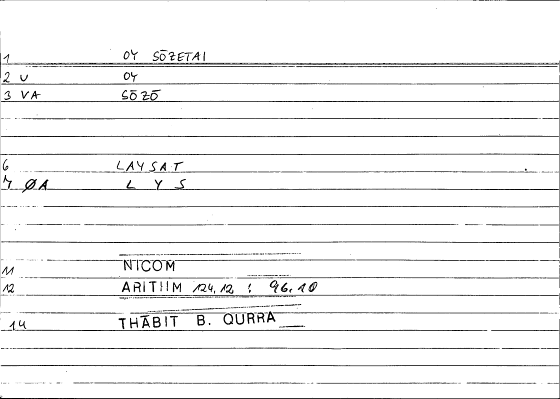 1 OY SŌZETAI
2 U OY
3 VA SŌZŌ
6 LAYSAT
7 ØA L Y S
11 NICOM
12 ARITHM 124,12 : 96.10
14 THĀBIT B. QURRA